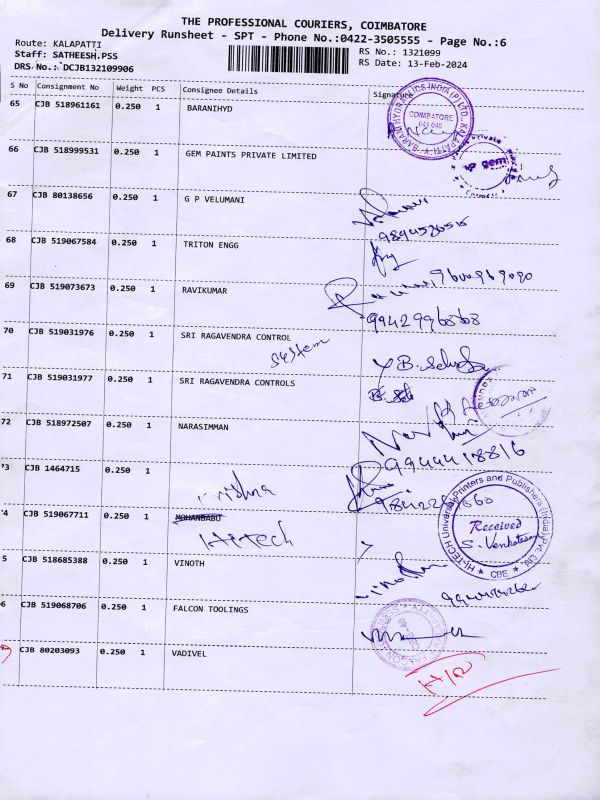 THE PROFESSIONAL COURIERS, COIMBATORE
Delivery Runsheet - SPT - Phone No.:0422-3505555 - Page No.:6
Route: KALAPATTI
Staff: SATHEESH.PSS
DRS No.: DCJB132109906
RS No.: 1321099
RS Date: 13-Feb-2024
S No Consignment No Weight PCS Consignee Details Signature
65 CJB 518961161 0.250 1 BARANIHYD
COIMBATORE
641 048
66 CJB 518999531 0.250 1 GEM PAINTS PRIVATE LIMITED
gem
67 CJB 80138656 0.250 1 G P VELUMANI
9894536516
68 CJB 519067584 0.250 1 TRITON ENGG
9600969090
69 CJB 519073673 0.250 1 RAVIKUMAR
9942996868
70 CJB 519031976 0.250 1 SRI RAGAVENDRA CONTROL
system
71 CJB 519031977 0.250 1 SRI RAGAVENDRA CONTROLS
72 CJB 518972507 0.250 1 NARASIMMAN
9944418816
73 CJB 1464715 0.250 1
Krishna
74 CJB 519067711 0.250 1 MOHANBABU
Hitech
HI-TECH Universal Printers and Publishers (India) Pvt. Ltd.
Received
S. Venkatesan
CBE
5 CJB 518685388 0.250 1 VINOTH
6 CJB 519068706 0.250 1 FALCON TOOLINGS
CJB 80203093 0.250 1 VADIVEL